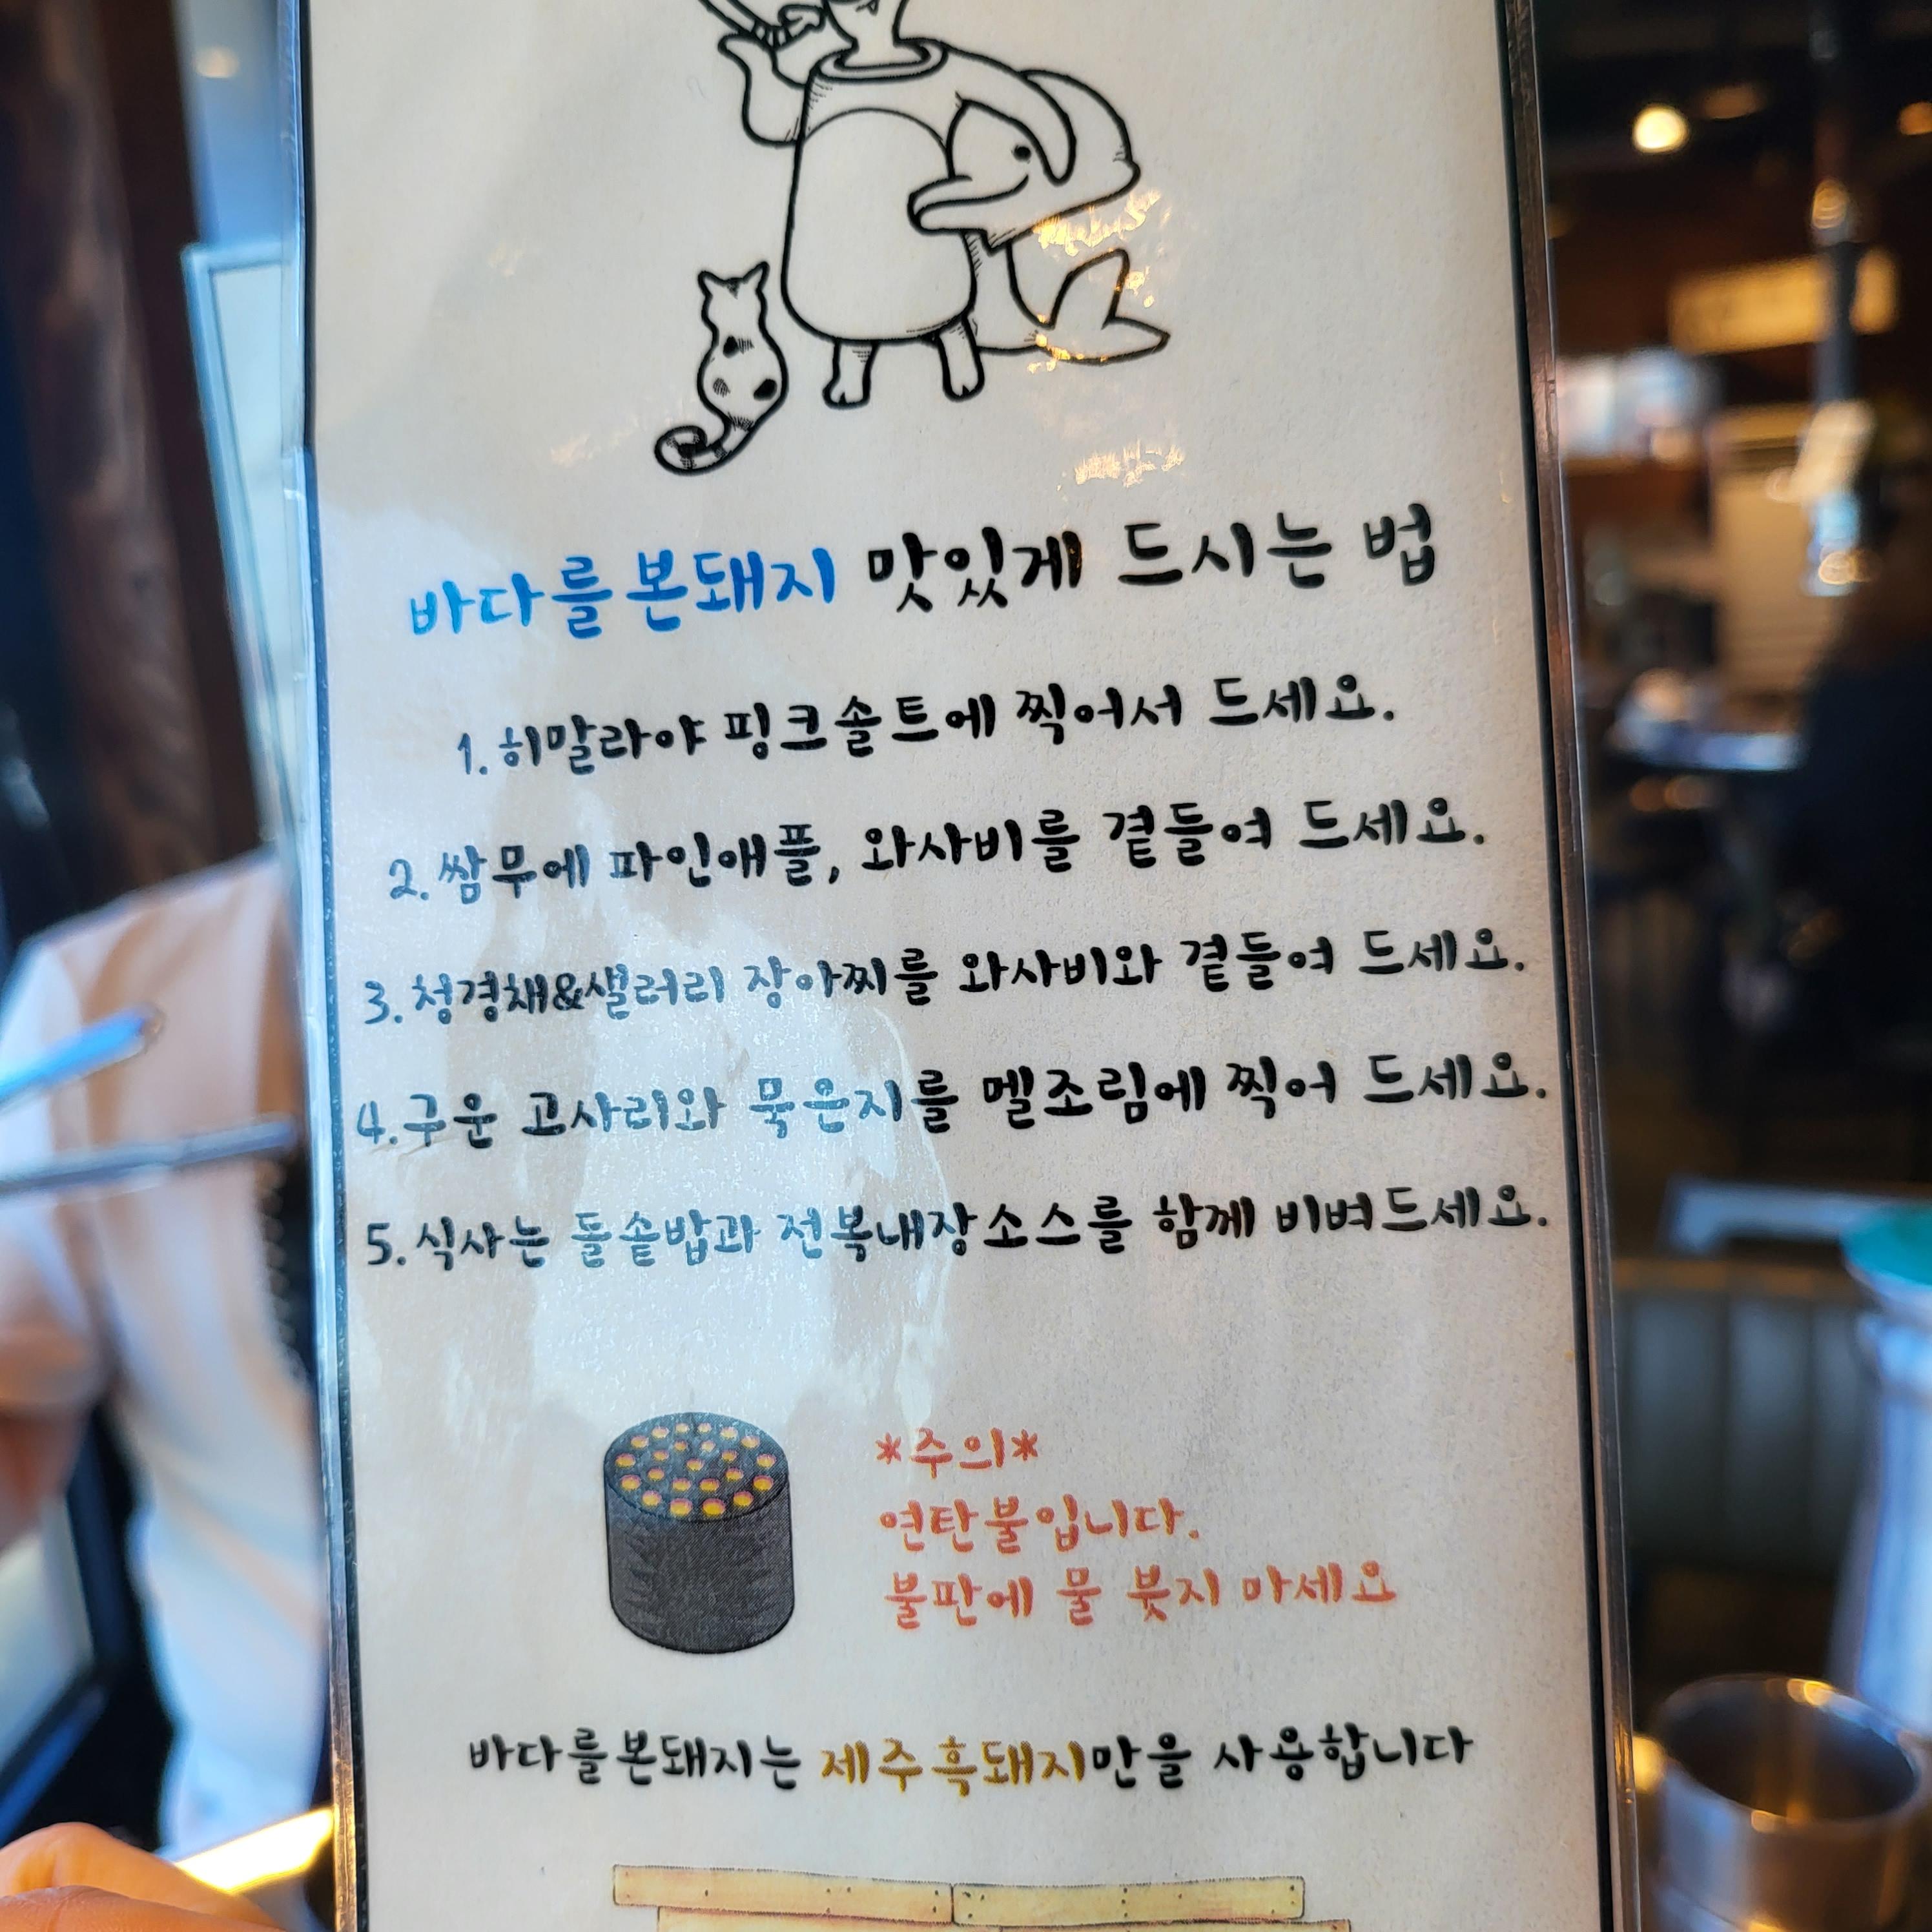 바다를본돼지 맛있게 드시는 법
1. 히말라야 핑크솔트에 찍어서 드세요.
2. 쌈무에 파인애플, 와사비를 곁들여 드세요.
3. 청경채&샐러리 장아찌를 와사비와 곁들여 드세요.
4. 구운 고사리와 묵은지를 멜조림에 찍어 드세요.
5. 식사는 돌솥밥과 전복내장소스를 함께 비벼드세요.
*주의*
연탄불입니다.
불판에 물 붓지 마세요
바다를본돼지는 제주흑돼지만을 사용합니다